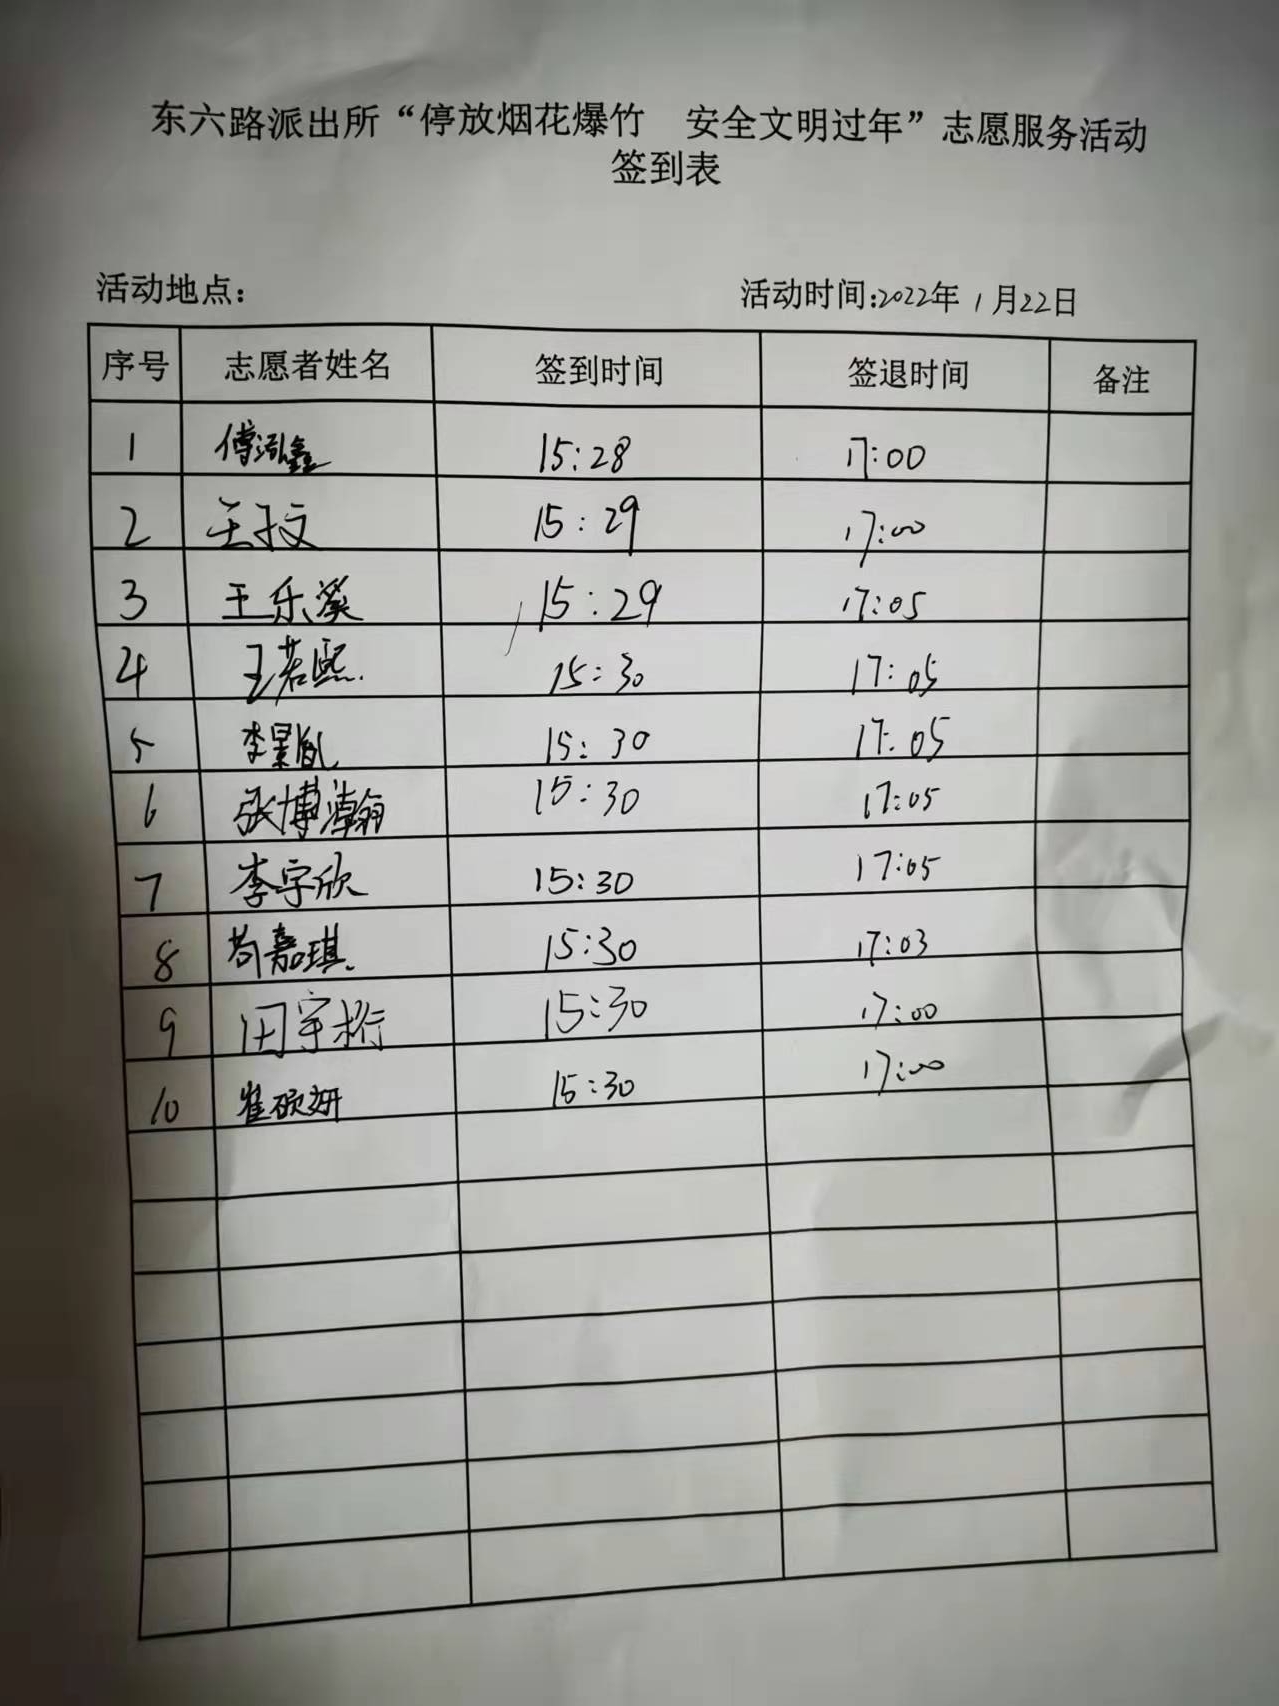 东六路派出所“停放烟花爆竹 安全文明过年”志愿服务活动
签到表
活动地点: 活动时间:2022年 1月22日
序号 志愿者姓名 签到时间 签退时间 备注
1 傅泓鑫 15:28 17:00
2 王子文 15:29 17:00
3 王乐溪 15:29 17:05
4 王若熙 15:30 17:05
5 李景胤 15:30 17:05
6 张博瀚 15:30 17:05
7 李宇欣 15:30 17:05
8 苟嘉琪 15:30 17:03
9 田宇桁 15:30 17:00
10 崔砚妍 15:30 17:00